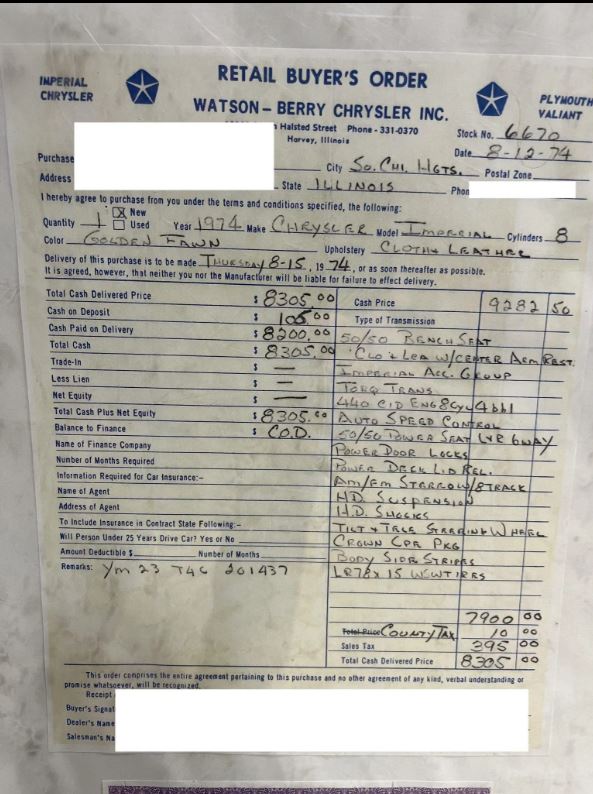 RETAIL BUYER'S ORDER
IMPERIAL
CHRYSLER
WATSON - BERRY CHRYSLER INC.
PLYMOUTH
VALIANT
Halsted Street Phone - 331-0370
Harvey, Illinois
Stock No. 6670
Date 8-12-74
Purchase
City So. CHI. HGTS. Postal Zone
Address
State ILLINOIS Phon
I hereby agree to purchase from you under the terms and conditions specified, the following:
Quantity 1 X New Used Year 1974 Make CHRYSLER Model IMPERIAL Cylinders 8
Color GOLDEN FAWN Upholstery CLOTH & LEATHER
Delivery of this purchase is to be made THURSDAY 8-15, 1974, or as soon thereafter as possible.
It is agreed, however, that neither you nor the Manufacturer will be liable for failure to effect delivery.
Total Cash Delivered Price $ 8305.00
Cash on Deposit $ 105.00
Cash Paid on Delivery $ 8200.00
Total Cash $ 8305.00
Trade-In $ —
Less Lien $ —
Net Equity $ —
Total Cash Plus Net Equity $ 8305.00
Balance to Finance $ C.O.D.
Name of Finance Company
Number of Months Required
Information Required for Car Insurance:-
Name of Agent
Address of Agent
To Include Insurance in Contract State Following:-
Will Person Under 25 Years Drive Car? Yes or No
Amount Deductible $ Number of Months
Remarks: YM 23 T4C 201437
Cash Price 9282 50
Type of Transmission
50/50 BENCH SEAT
CLO & LEA W/CENTER ARM REST
IMPERIAL ACC. GROUP
TORQ TRANS
440 CID ENG 8 CYL 4 bbl
AUTO SPEED CONTROL
50/50 POWER SEAT L&R 6WAY
POWER DOOR LOCKS
POWER DECK LID REL.
AM/FM STEREO W/8TRACK
H.D. SUSPENSION
H.D. SHOCKS
TILT & TELE STEERING WHEEL
CROWN CPR PKG
BODY SIDE STRIPES
LR78X15 WSWTIRES
7900 00
Total Price COUNTY TAX 10 00
Sales Tax 395 00
Total Cash Delivered Price 8305 00
This order comprises the entire agreement pertaining to this purchase and no other agreement of any kind, verbal understanding or
promise whatsoever, will be recognized.
Receipt
Buyer's Signat
Dealer's Name
Salesman's Na